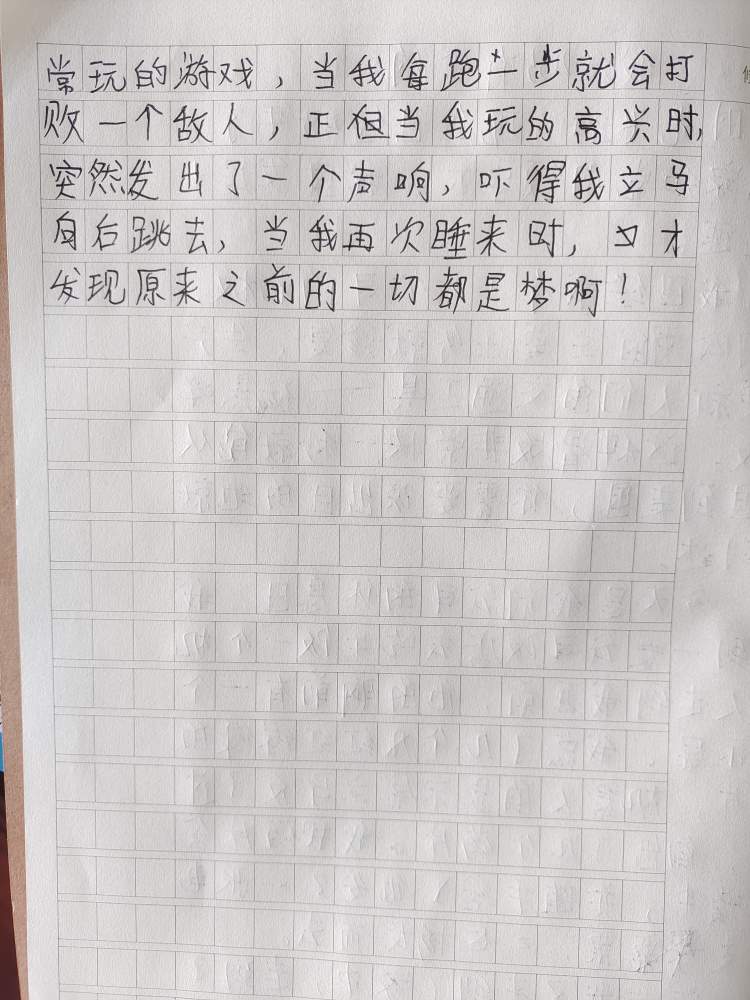 常玩的游戏，当我每跑一步就会打
败一个敌人，正但当我玩的高兴时，
突然发出了一个声响，吓得我立马
向后跳去，当我再次睡来时，才
发现原来之前的一切都是梦啊！